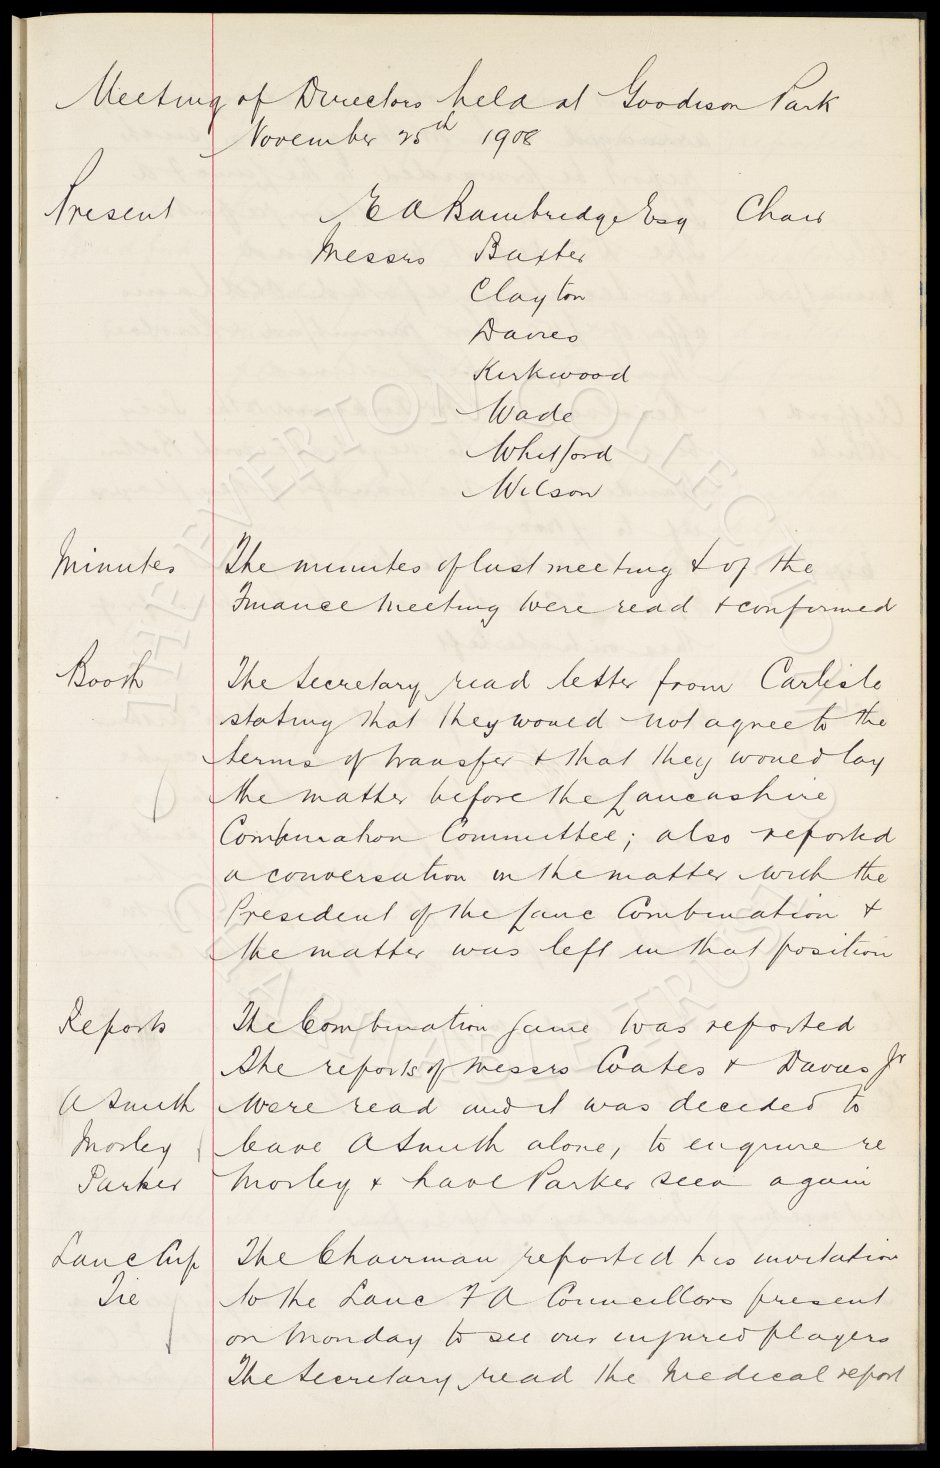 Meeting of Directors held at Goodison Park
November 25th 1908
Present
E A Bainbridge Esq Chair
Messrs Baxter
Clayton
Davies
Kirkwood
Wade
Whitford
Wilson
Minutes The minutes of last meeting & of the
Finance Meeting were read & confirmed
Booth The Secretary read letter from Carlisle
stating that they would not agree to the
terms of transfer & that they would lay
the matter before the Lancashire
Combination Committee; also reported
a conversation on the matter with the
President of the Lanc Combination &
the matter was left in that position
Reports The Combination Game was reported
The reports of Messrs Coates & Davies Jr
A Smith were read and it was decided to
Morley leave A Smith alone, to enquire re
Parker Morley & have Parker seen again
Lanc Cup The Chairman reported his invitation
Tie to the Lanc F A Councillors present
on Monday to see our injured players
The Secretary read the Medical report
THE EVERTON COLLECTION
CHARITABLE TRUST